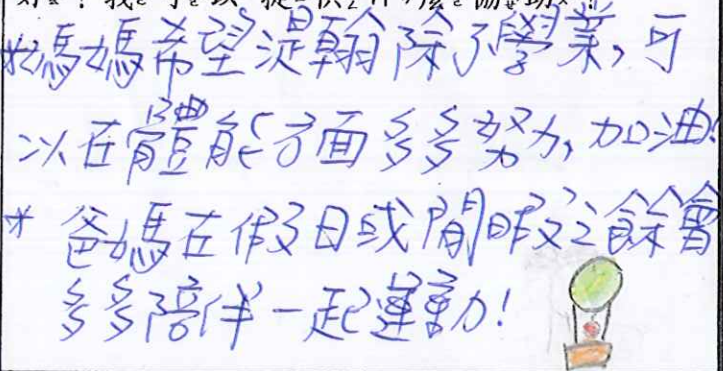 *媽媽希望湜翰除了學業,可
以在體能方面多多努力,加油!
* 爸媽在假日或閒暇之餘會
多多陪伴一起運動!